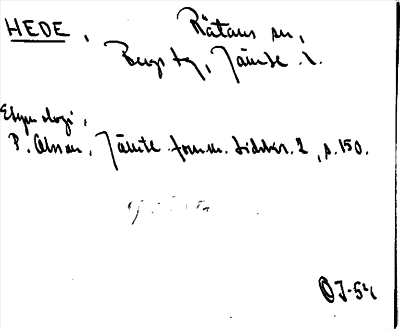 HEDE, Rätans sn,
Bergs tg, Jämtl. l.
Etymologi,
P. Olsson, Jämtl. fornm. tidskr. 2, s. 150.
OJ-54